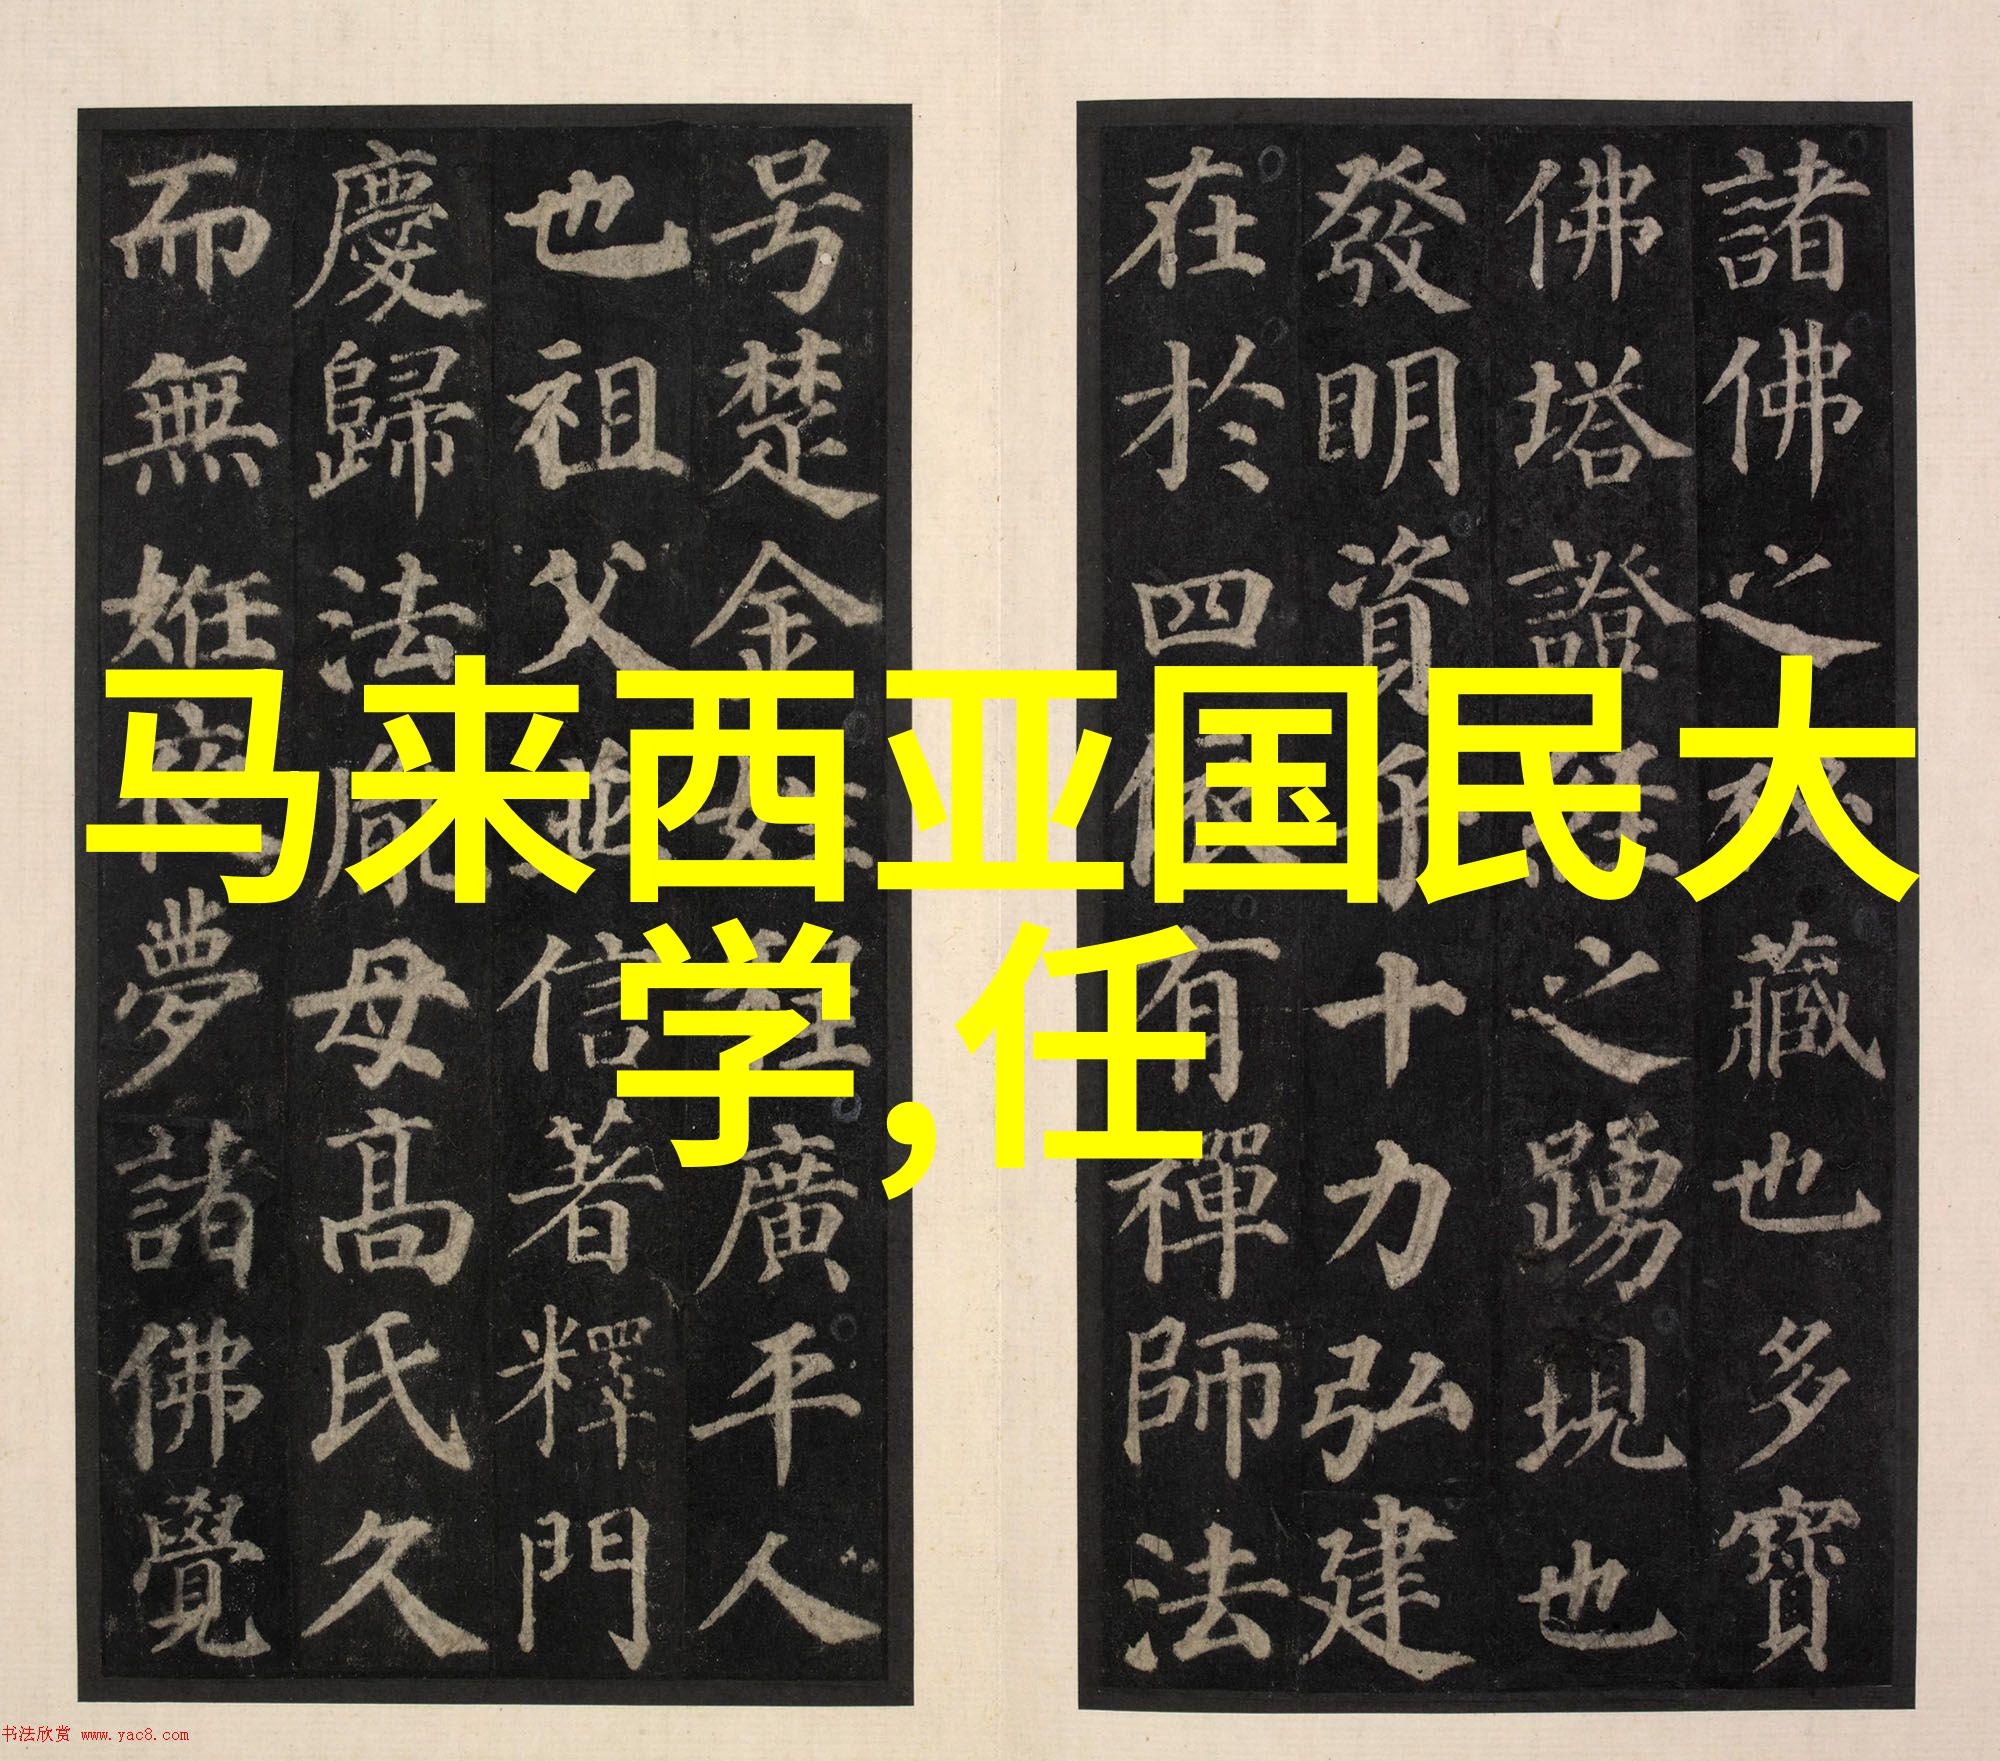 諸佛之秘藏也多寶
佛塔證經之踴現也
發明資乎十力弘建
在於四依有禪師法
号楚金姓程廣平人
也祖父並信著釋門
慶歸法胤母髙氏久
而無姙夜夢諸佛覺
马来西亚国民大
学,任
书法欣赏 www.yac8.com